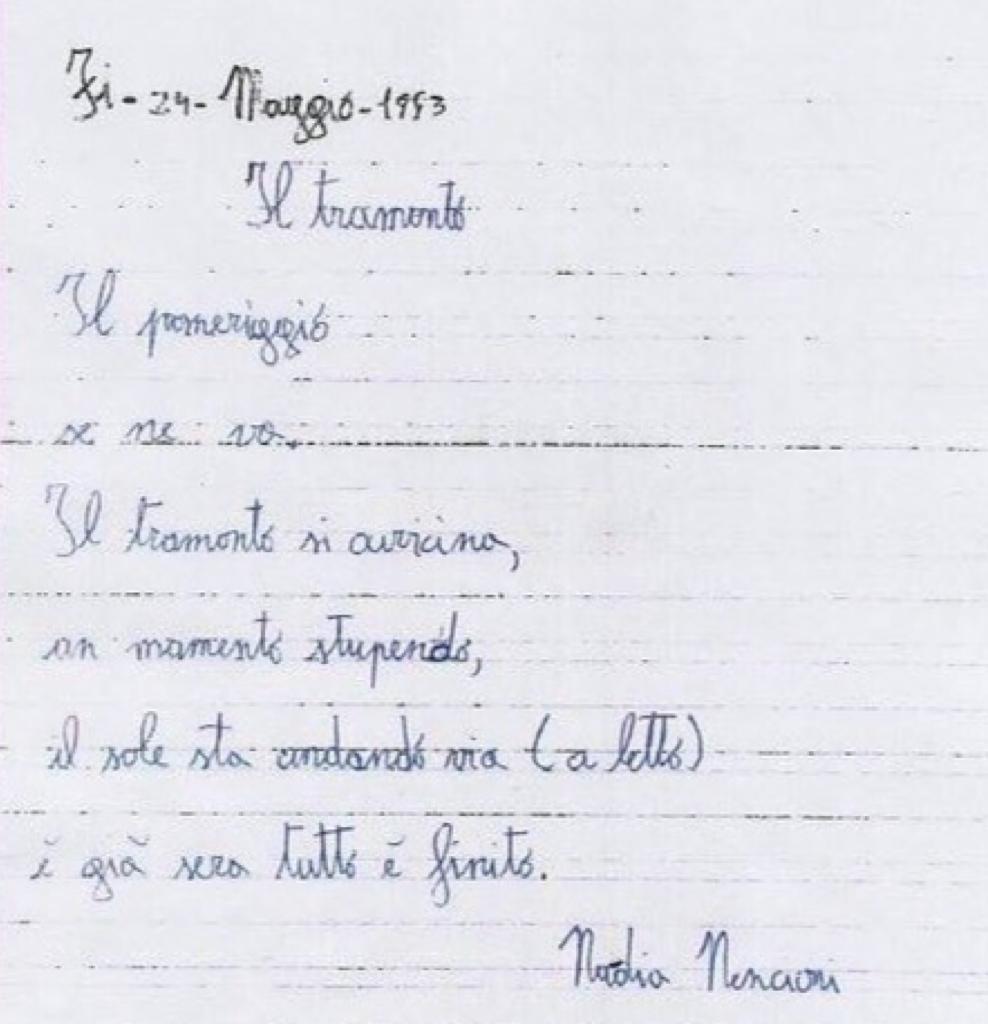 Fi-24-Maggio-1993
Il tramonto
Il pomeriggio
se ne va.
Il tramonto si avvicina,
un momento stupendo,
il sole sta andando via (a letto)
è già sera tutto è finito.
Nadia Nencioni